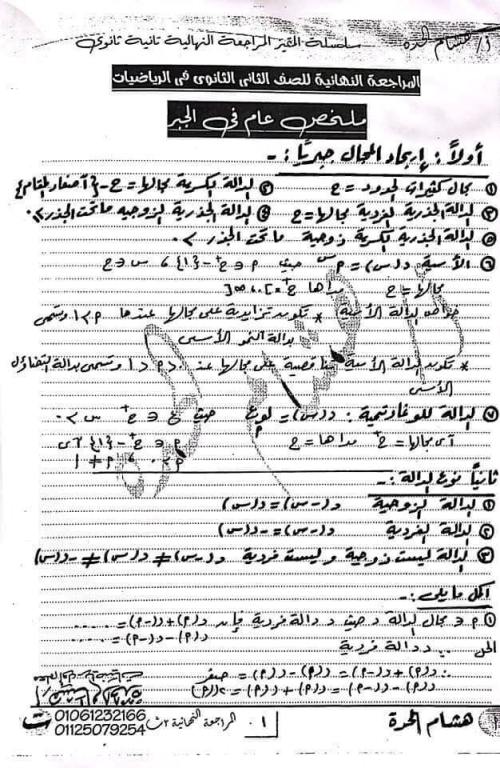 أ/ هشام الحدة سلسلة المتميز المراجعة النهائية ثانية ثانوى
المراجعة النهائية للصف الثانى الثانوى فى الرياضيات
ملخص عام فى الجبر
أولاً: إيجاد المجال جبريًا :-
① مجال كثيرات الحدود = ح ② الدالة الكسرية مجالها = ح - {أصفار المقام}
③ الدالة الجذرية الفردية مجالها = ح ④ الدالة الجذرية الزوجية ما تحت الجذر ≥ ٠
⑤ الدالة الجذرية الكسرية زوجية ما تحت الجذر > ٠
⑥ الأسية د(س) = م^س حيث م ∈ ح⁺ - {١} ، س ∈ ح
مجالها = ح مداها ح⁺ = ]٠، ∞[
خواص الدالة الأسية * تكون تزايدية على مجالها عندما م > ١ وتسمى
دالة النمو الأسى
* تكون الدالة الأسية تناقصية على مجالها عند ٠ < م < ١ وتسمى بدالة التضاؤل
الأسى
⑦ الدالة اللوغاريتمية : د(س) = لو س حيث س ∈ ح⁺ س > ٠
أى مجالها = ح⁺ مداها = ح م ∈ ح⁺ - {١} أى
م > ٠ ، م ≠ ١
ثانياً نوع الدالة :-
① الدالة الزوجية د(-س) = د(س)
② الدالة الفردية د(-س) = -د(س)
③ الدالة ليست زوجية وليست فردية د(-س) ≠ د(س) ≠ -د(س)
أكمل ما يلى :-
① م ∈ مجال الدالة د حيث د دالة فردية فإن د(م) + د(-م) = ......
د(م) - د(-م) = ......
الحل ∵ د دالة فردية
∴ د(م) + د(-م) = د(م) - د(م) = صفر
د(م) - د(-م) = د(م) + د(م) = ٢د(م)
01061232166
01125079254
ت
المراجعة النهائية ٢ث
٠١
هشام الحدة